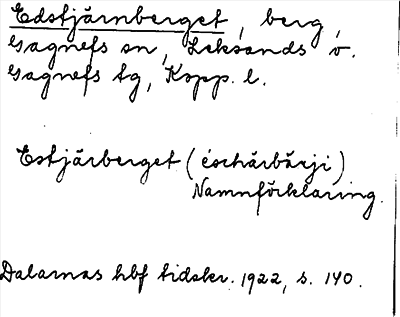 Edstjärnberget, berg,
Gagnefs sn, Leksands o.
Gagnefs tg, Kopp. l.
Estjärberget (éschärbärji)
Namnförklaring.
Dalarnas hbf tidskr. 1922, s. 140.